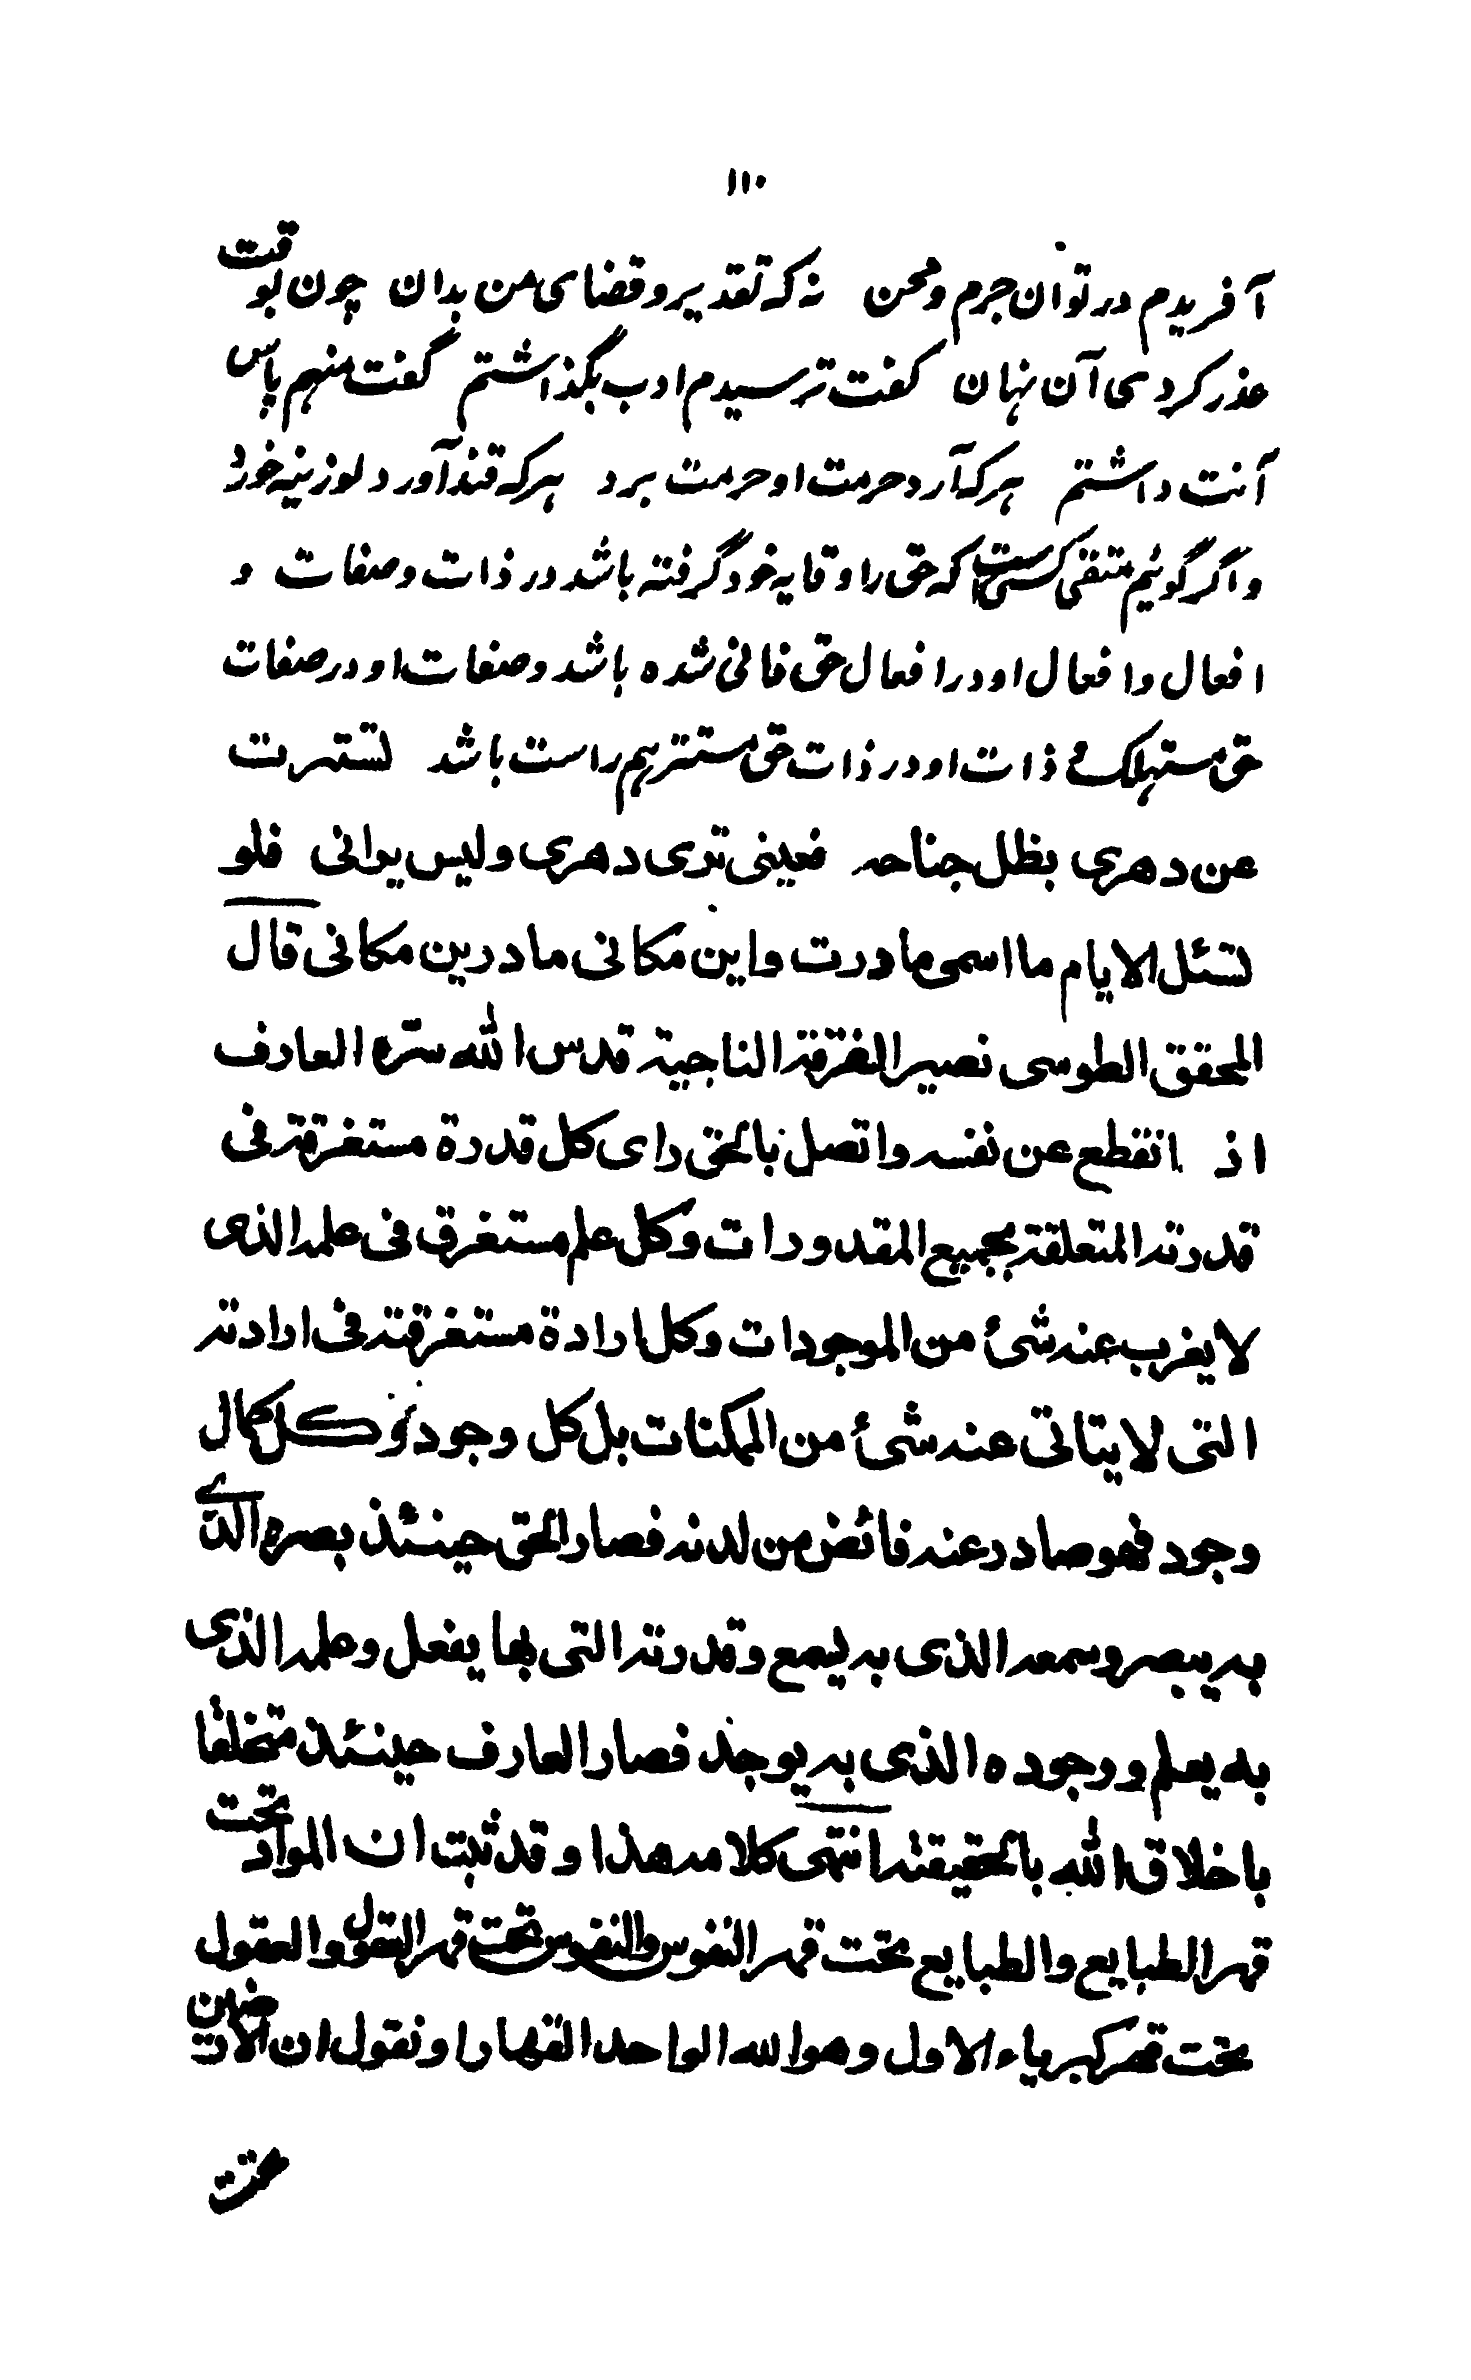 ۱۱۰
آفریدم در تو ان جرم و محن نه که تقدیر و قضای من بدان چون بوقت
عذر کردی آن نهان گفت ترسیدم ادب بگذاشتم گفت منهم پاس
آنت داشتم هر که آرد حرمت او حرمت برد هر که قند آورد لوزینه خورد
و اگر گوئیم متقی کسی است که حق را وقایه خود گرفته باشد در ذات و صفات و
افعال و افعال او در افعال حق فانی شده باشد و صفات او در صفات
حق مستهلک و ذات او در ذات حق مستتر هم راست باشد تسترت
عن دهری بظل جناحه فعینی تری دهری و لیس یرانی فلو
تسئل الایام ما اسمی ما درت و این مکانی ما درین مکانی قال
المحقق الطوسی نصیر الفرقة الناجیة قدس الله سرّه العارف
اذ انقطع عن نفسه و اتصل بالحق رای کل قدرة مستغرقة فی
قدرته المتعلقة بجمیع المقدورات و کل علم مستغرق فی علمه الذی
لا یغرب عنه شئ من الموجودات و کل ارادة مستغرقة فی ارادته
التی لا یتاتی عنه شئ من الممکنات بل کل وجود و کل کمال
وجود فهو صادر عنه فائض من لدنه فصار الحق حینئذ بصره الذی
به یبصر و سمعه الذی به یسمع و قدرته التی بها یفعل و علمه الذی
به یعلم و وجوده الذی به یوجد فصار العارف حینئذ متخلقا
باخلاق الله بالحقیقة انتهی کلامه هذا و قد ثبت ان المواد تحت
قهر الطبایع و الطبایع تحت قهر النفوس و النفوس تحت قهر العقول و العقول
تحت قهر کبریاء الاول و هو الله الواحد القهار او نقول ان الارضین
تحت